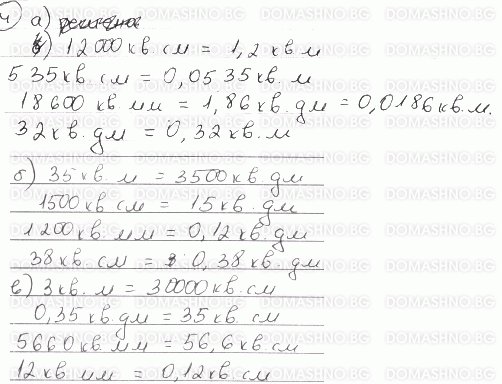 4) а)
б) 12000 кв см = 1,2 кв.м
535 кв. см = 0,0535 кв.м
18600 кв. мм = 1,86 кв. дм = 0,0186 кв.м.
32 кв. дм = 0,32 кв.м
б) 35 кв. м = 3500 кв. дм
1500 кв см = 15 кв. дм
1200 кв. мм = 0,12 кв. дм
38 кв см = 0,38 кв. дм
в) 3 кв. м = 30000 кв. см
0,35 кв. дм = 35 кв. см
5660 кв. мм = 56,6 кв. см
12 кв мм = 0,12 кв. см
DOMASHNO.BG